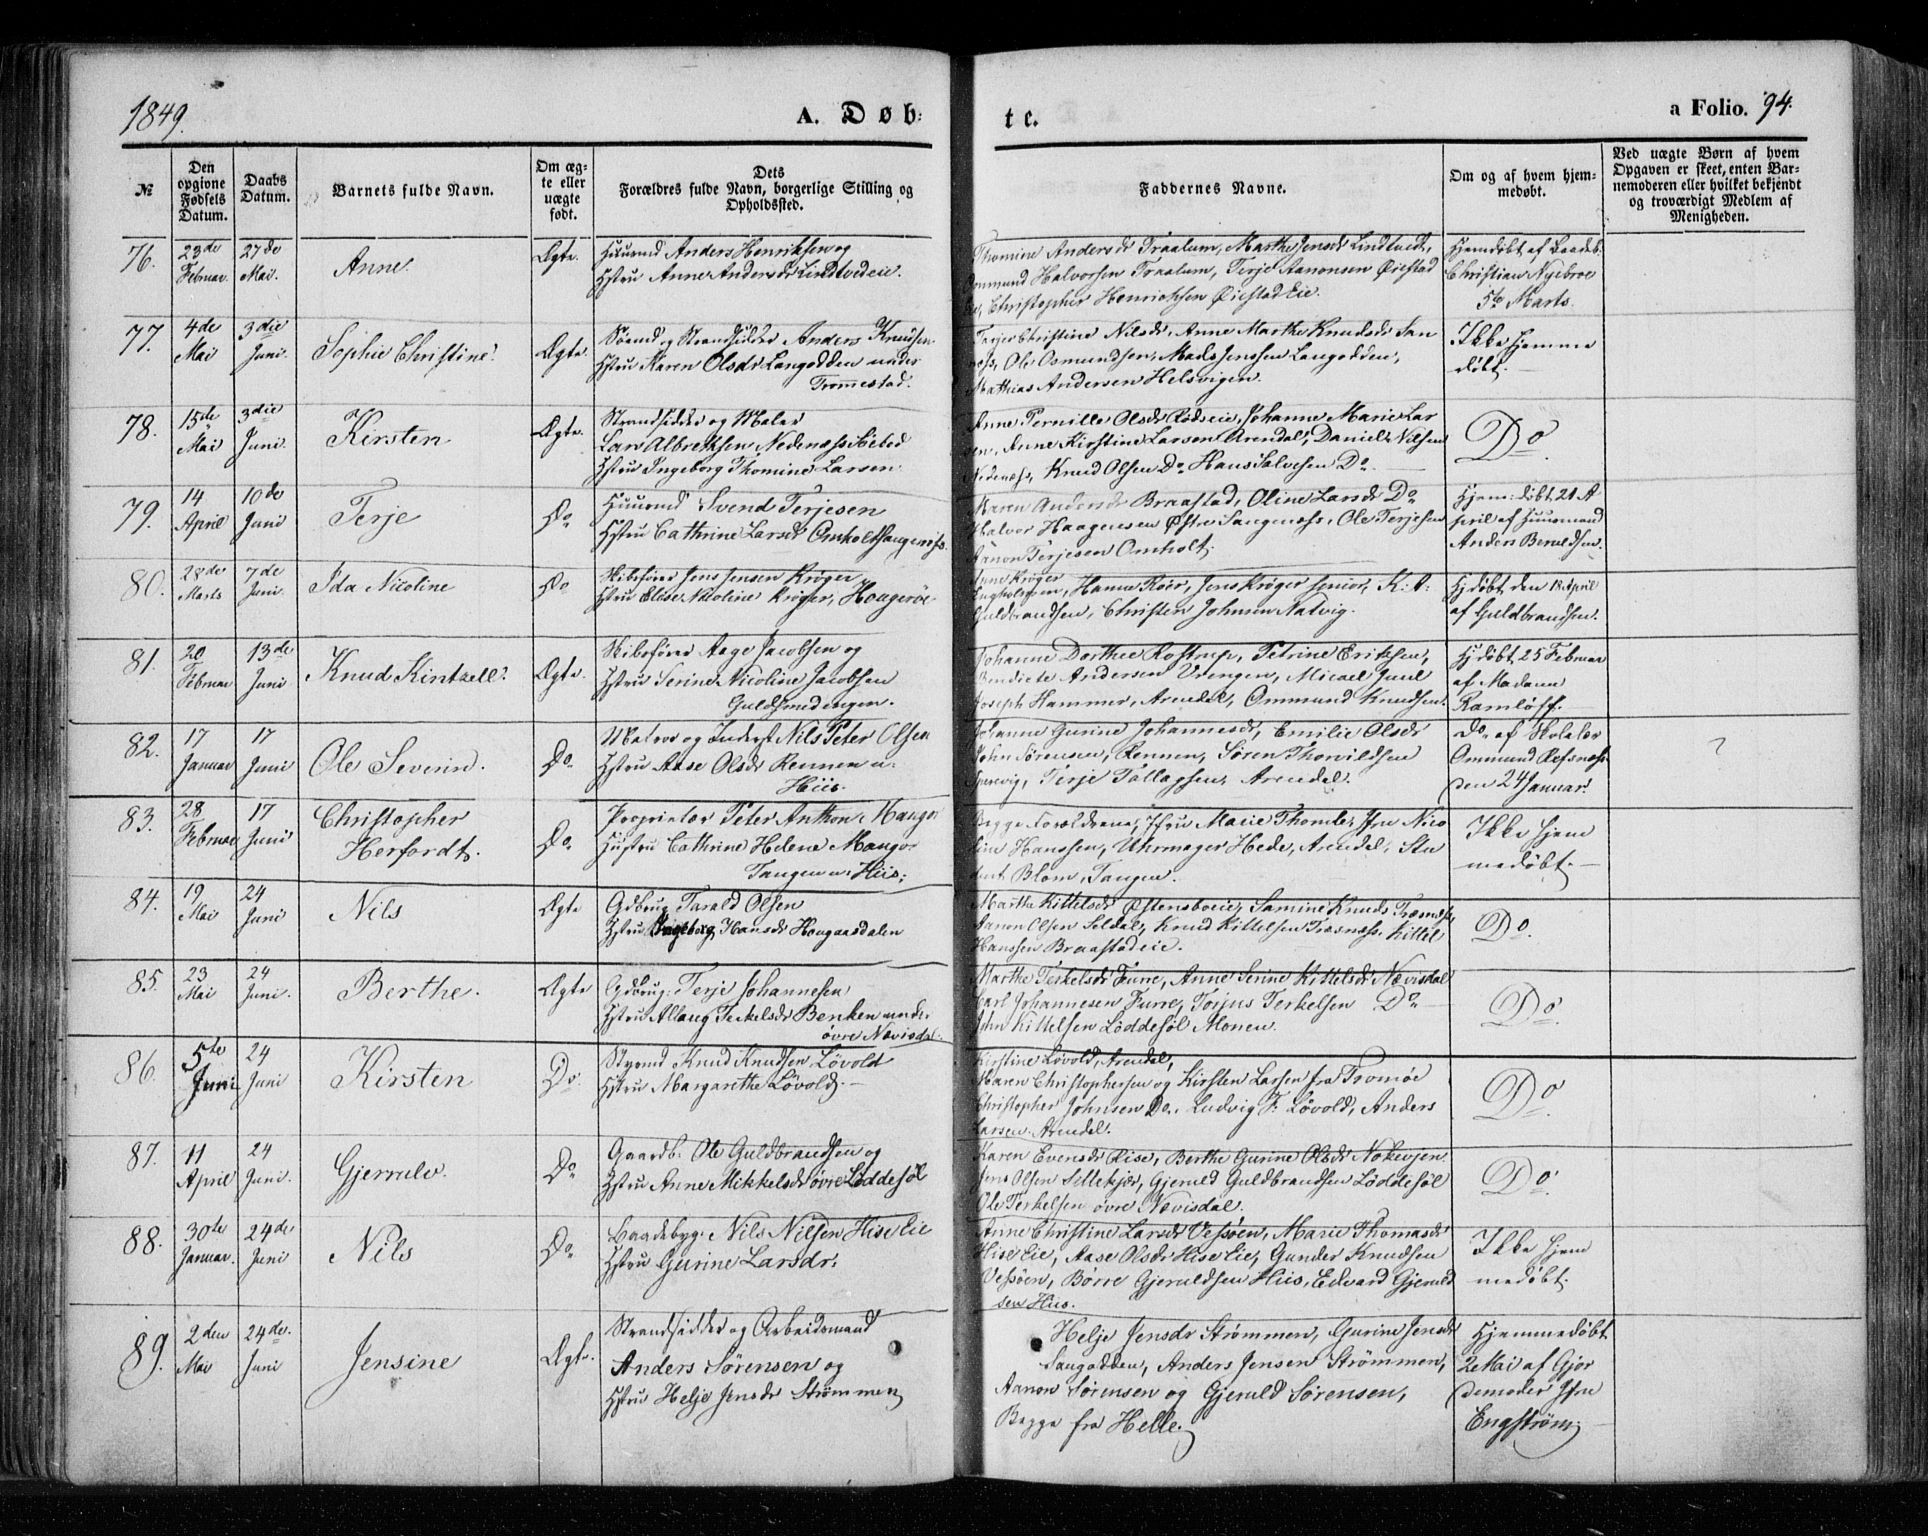 1849.
A. Døb:
te.
a Folio. 94.
№
Den opgivne Fødsels Datum.
Daabs Datum.
Barnets fulde Navn.
Om ægte eller uægte født.
Dets
Forældres fulde Navn, borgerlige Stilling og
Opholdssted.
Faddernes Navne.
Om og af hvem hjemmedøbt.
Ved uægte Børn af hvem
Opgaven er skeet, enten Barnemoderen eller hvilket bekjendt
og troværdigt Medlem af
Menigheden.
76. 23de Februar 27de Mai. Anne. Ægte.
Huusmd Anders Henriksen og
Hstru Anne Andersdr Lindtvedeie.
Thomine Andersdr Traalum, Marthe Jensdr Lindtvedt,
Halvorsen Traalum, Terje Aanonsen Øiestad
Christopher Henriksen Øiestadeie.
Hjemdøbt af
Christian Nyebroe
5te Marts.
77. 4de Mai 3die Juni. Sophie Christine. Ægte.
Sømd og Strandsidder Anders Knudsen
Hstru Karen Olsdr Langodden under
Tromestad.
Christine Nilsdr, Anne Marthe Knudsdr
Ole Osmundsen, Mads Jenssen Langodden,
Mathias Andersen Helsvigen.
Ikke hjemme
døbt.
78. 15de Mai 3die Juni. Kirsten Ægte.
Strandsidder og Maler
Lars Albretsen Nedenæs
Hstru Ingeborg Thomine Larsen.
Anne Pernille Olsdr Rødseie, Johanne Marie Lar
sen, Anne Kirstine Larsen Arendal, Daniel Nilsen
Nedenæs, Knud Olsen Do. Hans Salvesen Do
Do
79. 14 April 10de Juni Terje Do
Huusmd Svend Terjesen
Hstru Cathrine Larsdr Omholt
Karen Andersdr Braastad, Oline Larsdr Do
Halvor Haagensen Østre Songenæs, Ole Terjesen
Aanon Terjesen Omholt.
Hjem: døbt 21 A
pril af Huusmand
Anders Beruldsen.
80. 28de Marts 7de Juni. Ida Nicoline Do
Skibsfører Jens Jensen Krøger
Hstru Elise Nicoline Krøger, Hougerøe
Anne Krøger
Hanne Roer, Jens Krøger senior, K. A.
Guldbrandsen, Christen Johnsen Natvig.
Hjdøbt den 18 April
af Guldbrandsen.
81. 20 Februar 13de Juni Knud Kintzell. Ægte.
Skibsfører Aage Jacobsen og
Hstru Serine Nicoline Jacobsen
Guldsmedengen.
Johanne Dorthee Rostrup, Petrine Eriksen,
Bendicte Andersen Vrengen, Micael Juul
Joseph Hammer, Arendal, Ommund Knudsen.
Hjdøbt 25 Februar
af Madame
Ramløff.
82. 17 Januar 17 Juni Ole Severin. Do
Matros og Inderst Nils Peter Olsen
Hstru Aase Olsdr Rennen u.
Hiis.
Johanne Gurine Johannesdr, Emilie Olsdr
John Sørensen, Rennen, Søren Thorvildsen
Terje Tallagsen, Arendal.
Do af Skolelær
Ommund Refsnæs
den 24 Januar.
?
83. 28 Februar 17 Juni Christopher
Herfordt. Do
Proprietær Peter Anthon Mangor
Hustru Cathrine Helene Mangor
Tangen u. Hiis;
Begge Forældrene, Jfru Marie Thomle, Jfru Nico
line Hanssen, Uhrmager Hede, Arendal, Stu
dent Blom, Tangen.
Ikke hjem
medøbt.
84. 19 Mai 24 Juni Nils Ægte
Gdbrug. Tarald Olsen
Hstru Ingeborg Hansdr Hougaasdalen
Marthe Kittelsdr Østensboeie, Samine Knuds Træsnæs,
Aanon Olsen Seldal, Knud Kittelsen Træsnæs, Kittil
Hanssen Braastadeie.
Do.
85. 23 Mai 24 Juni. Berthe. Ægte
Gdbrug: Terje Johannesen
Hstru Allaug Terkelsdr Benken under
øvre Nævisdal.
Marthe Terkelsdr Furre, Anne Serine Kittelsdr Nævisdal
Carl Johannesen Furre, Torjus Terkelsen Do
John Kittelsen Løddesøl Monen.
Do.
86. 5te Juni 24 Juni Kirsten Do.
Styrmd Knud Knudsen Løvold
Hstru Margarethe Løvold.
Kirstine Løvold, Arendal,
Maren Christophersen og Kirsten Larsen fra Tromøe
Christopher Johnsen Do. Ludvig F. Løvold, Anders
Larsen Arendal.
Do.
87. 11 April 24 Juni. Gjerrulv. Do
Gaardb. Ole Guldbrandsen og
Hstru Anne Mikkelsdr øvre Løddesøl
Karen Evensdr Rise, Berthe Gurine Olsdr Nokevjen
Jens Olsen Sillekjær, Gjeruld Guldbrandsen Løddesøl
Ole Terkelsen øvre Nævisdal.
Do.
88. 30te Januar. 24de Juni Nils Do
Baadebyg: Nils Nilsen Hise Eie
Hstru Gurine Larsdr.
Anne Christine Larsdr Vessøen, Marie Thomasdr
Hise Eie, Aase Olsdr Hise Eie, Gunder Knudsen
Vessøen, Børre Gjeruldsen Hiis, Edvard Gjeruld
sen Hiis.
Ikke hjem
medøbt.
89. 2den Mai 24de Juni Jensine Ægte.
Strandsidder og Arbeidsmand
Anders Sørensen og
Hstru Helje Jensdr Strømmen
Helje Jensdr Strømmen, Gurine Jensdr
Sangodden, Anders Jensen Strømmen,
Aanon Sørensen og Gjeruld Sørensen,
Begge fra Helle.
Hjemmedøbt
2 Mai af Gjor
demoder Jfru
Engstrøm.